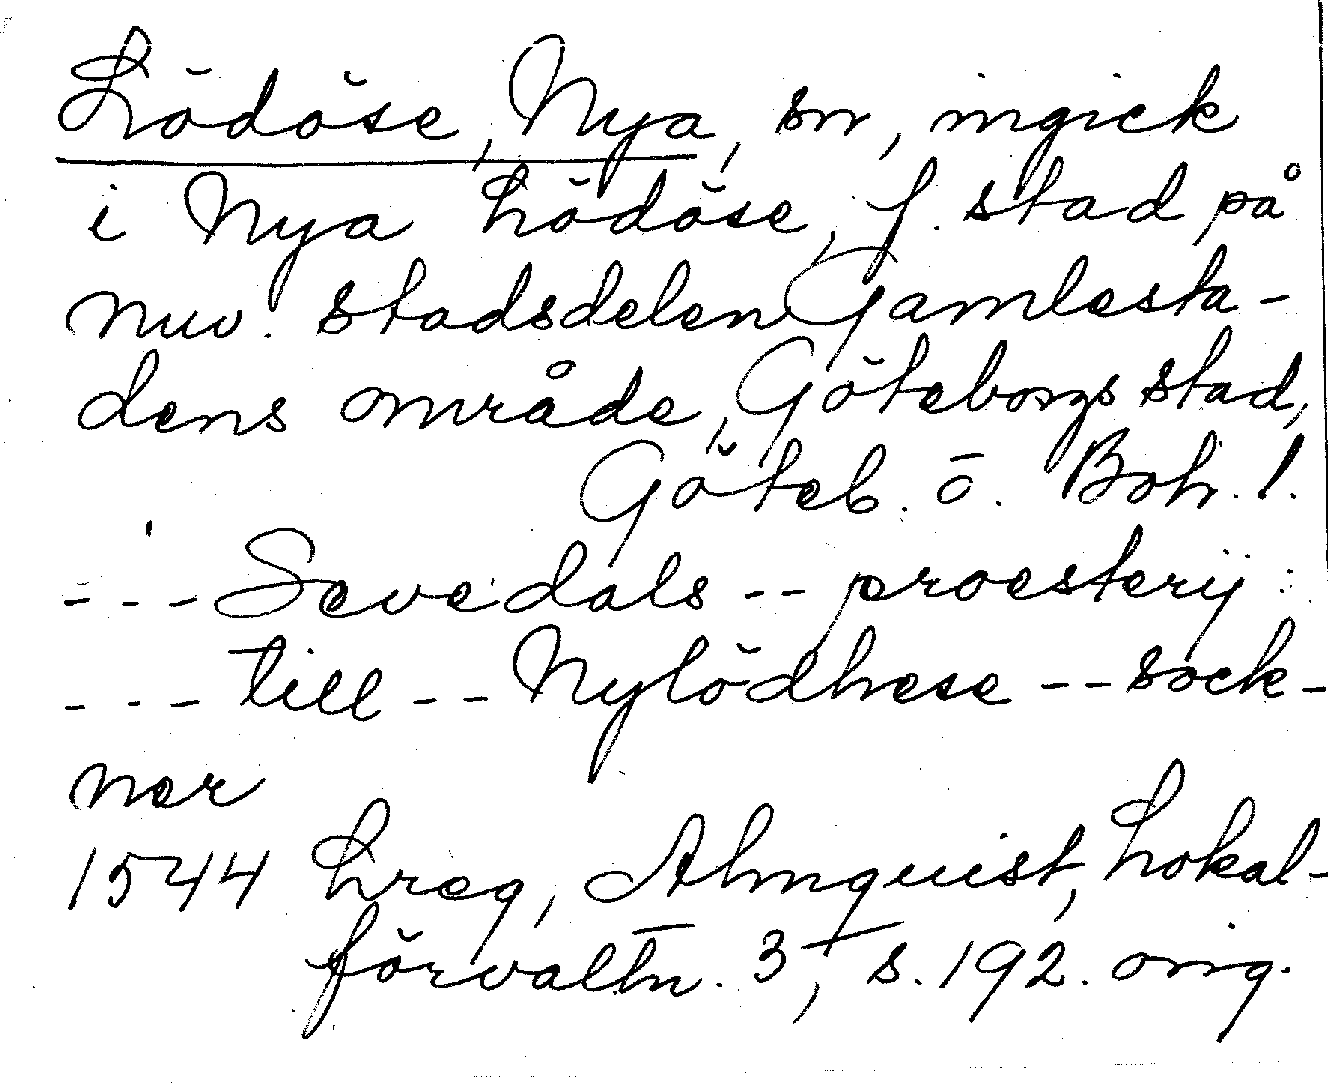 Lödöse, Nya, sn, ingick
i Nya Lödöse, f. stad på
nuv. stadsdelen Gamlesta-
dens område, Göteborgs stad,
Göteb. o. Boh. l.
--- Sevedals -- proesterij :
--- till -- Nylödhese -- sock-
ner
1544 Lreg, Almquist, Lokal-
förvaltn. 3, s. 192. orig.